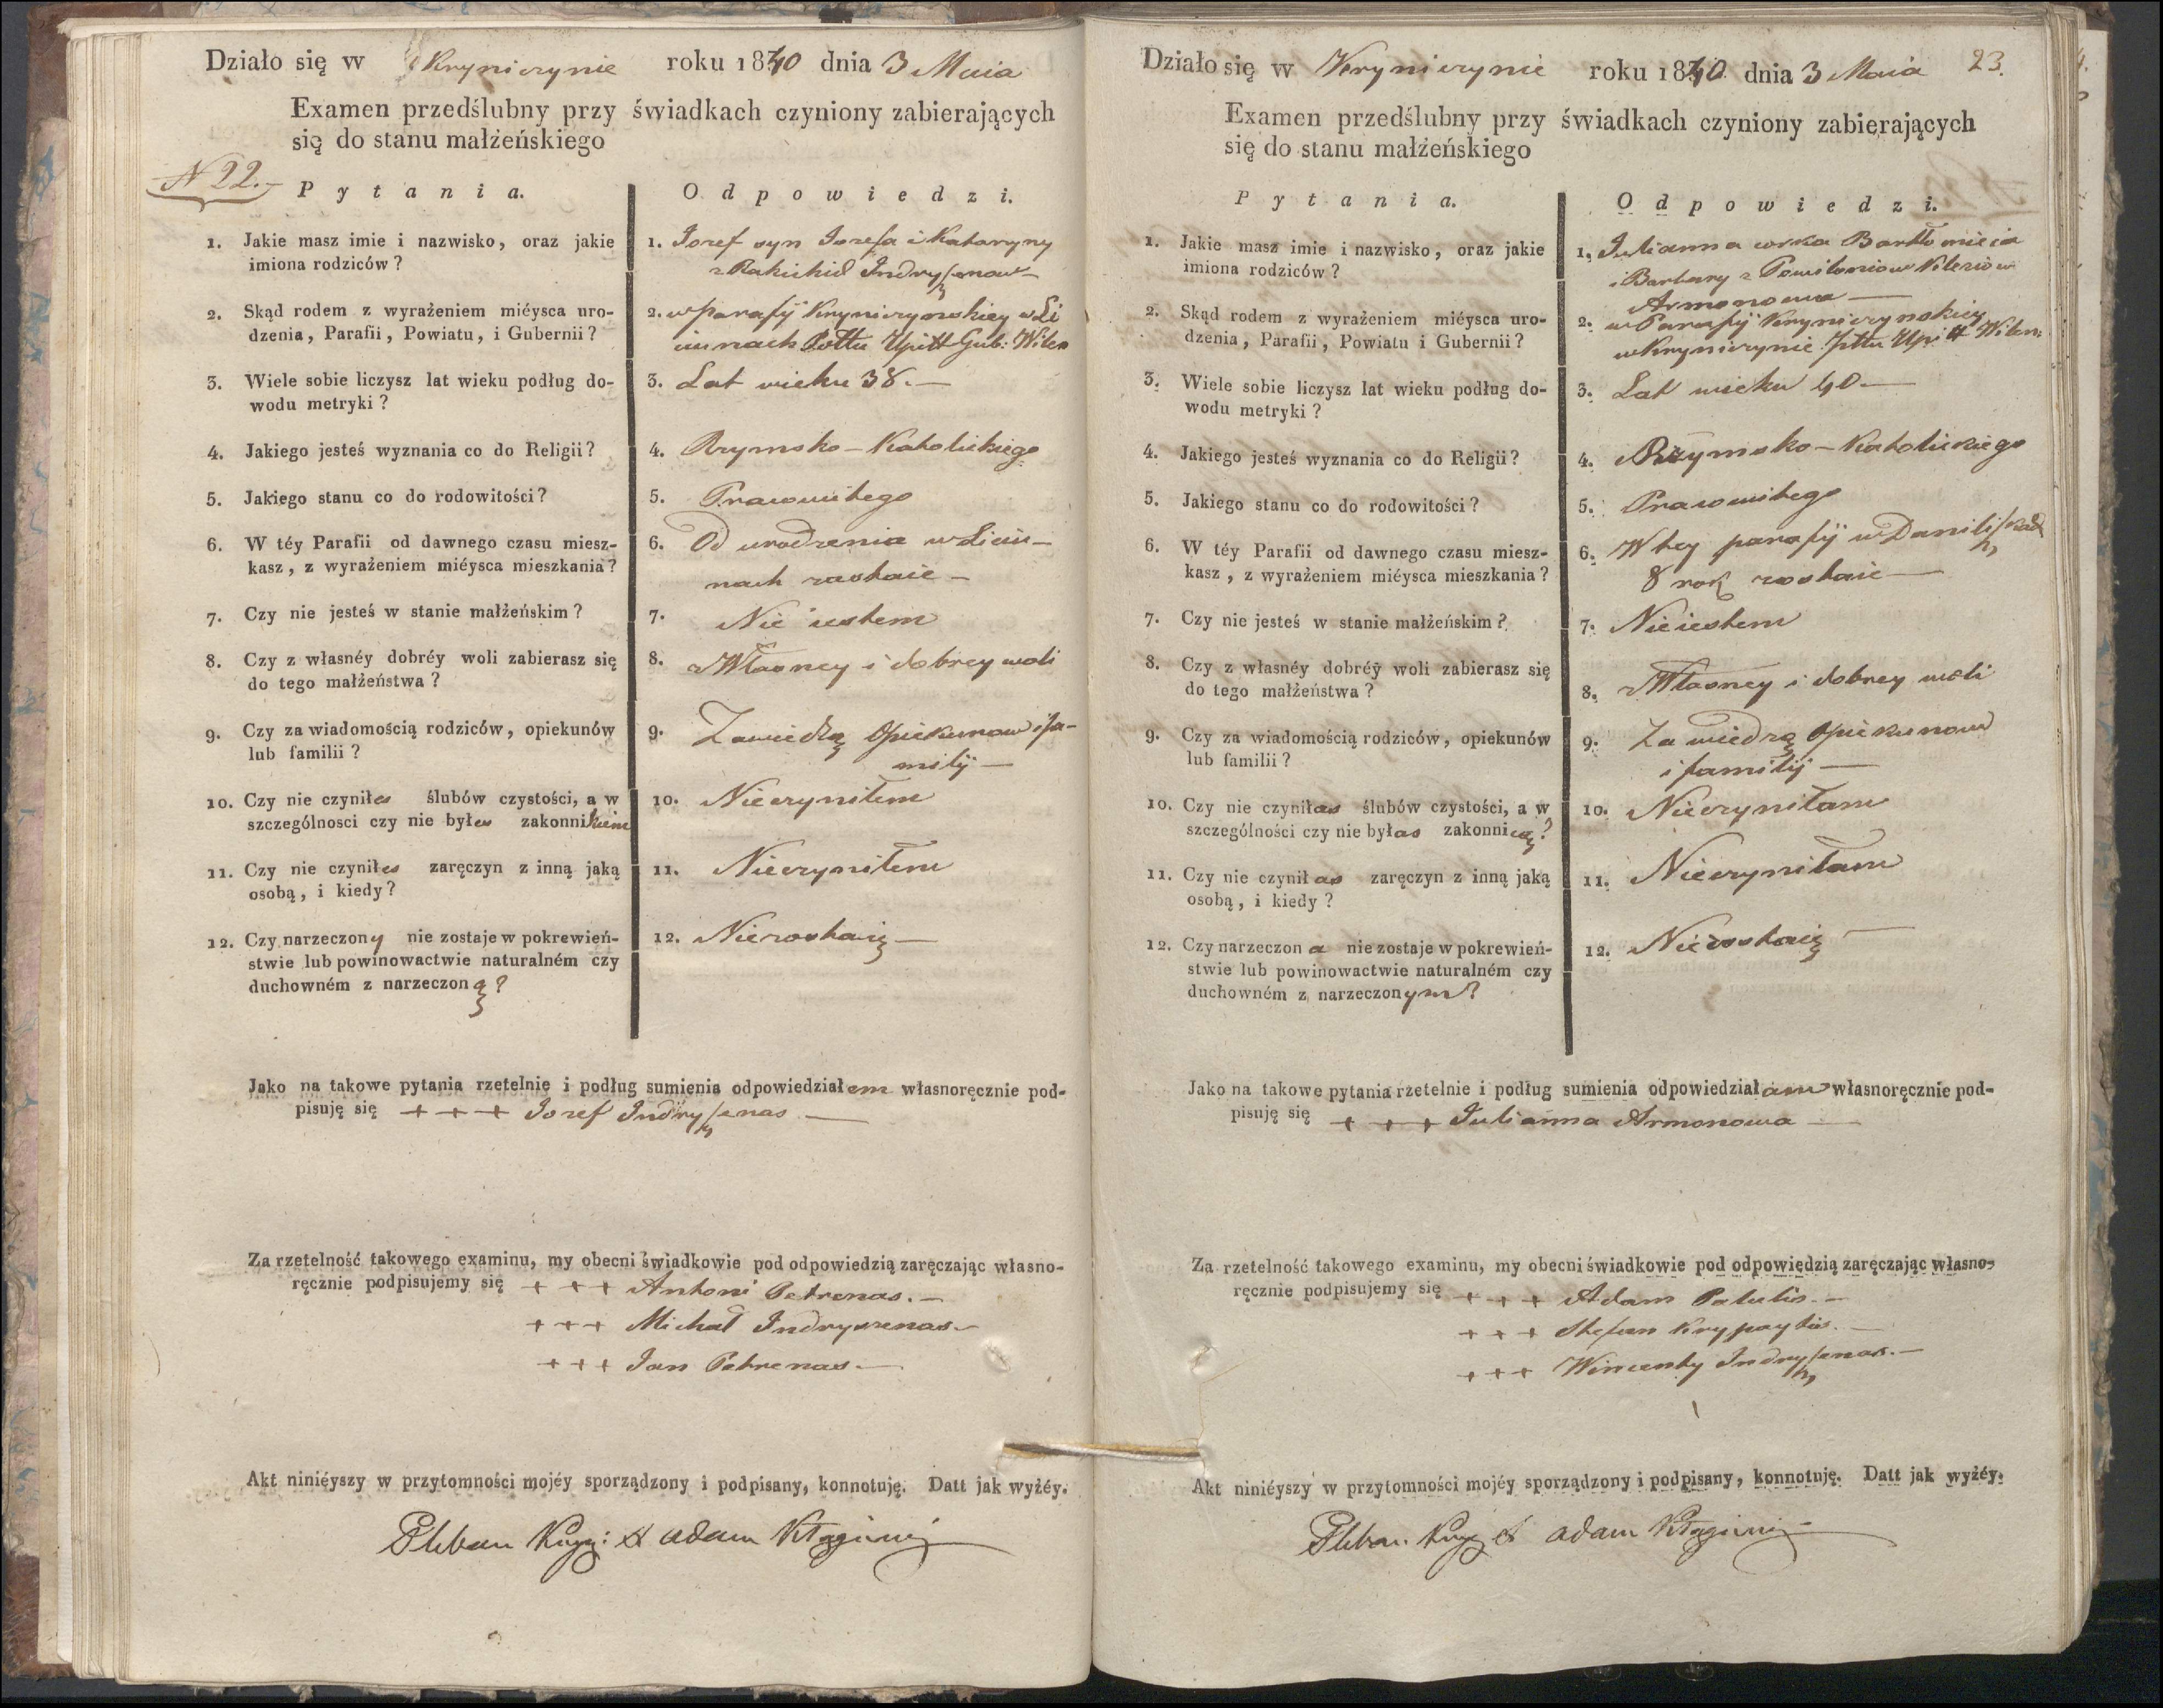 Działo się w Krynicznie roku 1840 dnia 3 Maia
Examen przedślubny przy świadkach czyniony zabierających
się do stanu małżeńskiego
N 22.
Pytania.
Odpowiedzi.
1. Jakie masz imie i nazwisko, oraz jakie
imiona rodziców?
1. Jozef syn Jozefa i Katarzyny
z Indryszonow
2. Skąd rodem z wyrażeniem miéysca uro-
dzenia, Parafii, Powiatu, i Gubernii?
2. w parafij w Li
ciunach Pottu Upitt Gub: Wilen
3. Wiele sobie liczysz lat wieku podług do-
wodu metryki?
3. Lat wieku 38.—
4. Jakiego jesteś wyznania co do Religii?
4. Rzymsko-Katolickiego
5. Jakiego stanu co do rodowitości?
5. Prawowitego
6. W téy Parafii od dawnego czasu miesz-
kasz, z wyrażeniem miéysca mieszkania?
6. Od urodzenia w Liciu-
nach zostaie—
7. Czy nie jesteś w stanie małżeńskim?
7. Nie iestem
8. Czy z własnéy dobréy woli zabierasz się
do tego małżeństwa?
8. z Własney i dobrey woli
9. Czy za wiadomością rodziców, opiekunów
lub familii?
9. Zawiedzą Opiekunow i fa-
milij—
10. Czy nie czyniłes ślubów czystości, a w
szczególnosci czy nie byłes zakonnikiem
10. Nieczyniłem
11. Czy nie czyniłes zaręczyn z inną jaką
osobą, i kiedy?
11. Nieczyniłem
12. Czy narzeczony nie zostaje w pokrewień-
stwie lub powinowactwie naturalném czy
duchowném z narzeczoną?
12. Niezostaię—
Jako na takowe pytania rzetelnie i podług sumienia odpowiedziałem własnoręcznie pod-
pisuję się + + + Jozef Indryszenas—
Za rzetelność takowego examinu, my obecni świadkowie pod odpowiedzią zaręczając własno-
ręcznie podpisujemy się + + + Antoni Petrenas.—
+ + + Michał Indryszenas—
+ + + Jan Petrenas—
Akt niniéyszy w przytomności mojéy sporządzony i podpisany, konnotuję. Datt jak wyżéy.
Pleban X adam
Działo się w Krynicznie roku 1840 dnia 3 Maia 23.
Examen przedślubny przy świadkach czyniony zabierających
się do stanu małżeńskiego
Pytania.
Odpowiedzi.
1. Jakie masz imie i nazwisko, oraz jakie
imiona rodziców?
1. Julianna corka Bartłomieia
i Barbary z
Armonowa—
2. Skąd rodem z wyrażeniem miéysca uro-
dzenia, Parafii, Powiatu i Gubernii?
2. w Parafij
w Krynicznie Pttu Upitt Wilen:
3. Wiele sobie liczysz lat wieku podług do-
wodu metryki?
3. Lat wieku 40—
4. Jakiego jesteś wyznania co do Religii?
4. Rzymsko-Katolickiego
5. Jakiego stanu co do rodowitości?
5. Prawowitego
6. W téy Parafii od dawnego czasu miesz-
kasz, z wyrażeniem miéysca mieszkania?
6. W tey parafij w Daniliszkach
8 rok zostaie—
7. Czy nie jesteś w stanie małżeńskim?
7. Nieiestem
8. Czy z własnéy dobréy woli zabierasz się
do tego małżeństwa?
8. z Własney i dobrey woli
9. Czy za wiadomością rodziców, opiekunów
lub familii?
9. Za wiedzą Opiekunow
i familij—
10. Czy nie czyniłas ślubów czystości, a w
szczególności czy nie byłas zakonnicą?
10. Nieczyniłam
11. Czy nie czyniłas zaręczyn z inną jaką
osobą, i kiedy?
11. Nieczyniłam
12. Czy narzeczona nie zostaje w pokrewień-
stwie lub powinowactwie naturalném czy
duchowném z narzeczonym?
12. Niezostaię—
Jako na takowe pytania rzetelnie i podług sumienia odpowiedziałam własnoręcznie pod-
pisuję się + + + Julianna Armonowa—
Za rzetelność takowego examinu, my obecni świadkowie pod odpowiedzią zaręczając własno-
ręcznie podpisujemy się + + + Adam Patulis.—
+ + + Stefan Krypaytis.—
+ + + Wincenty Indryszenas.—
Akt niniéyszy w przytomności mojéy sporządzony i podpisany, konnotuję. Datt jak wyżéy.
Pleban X adam